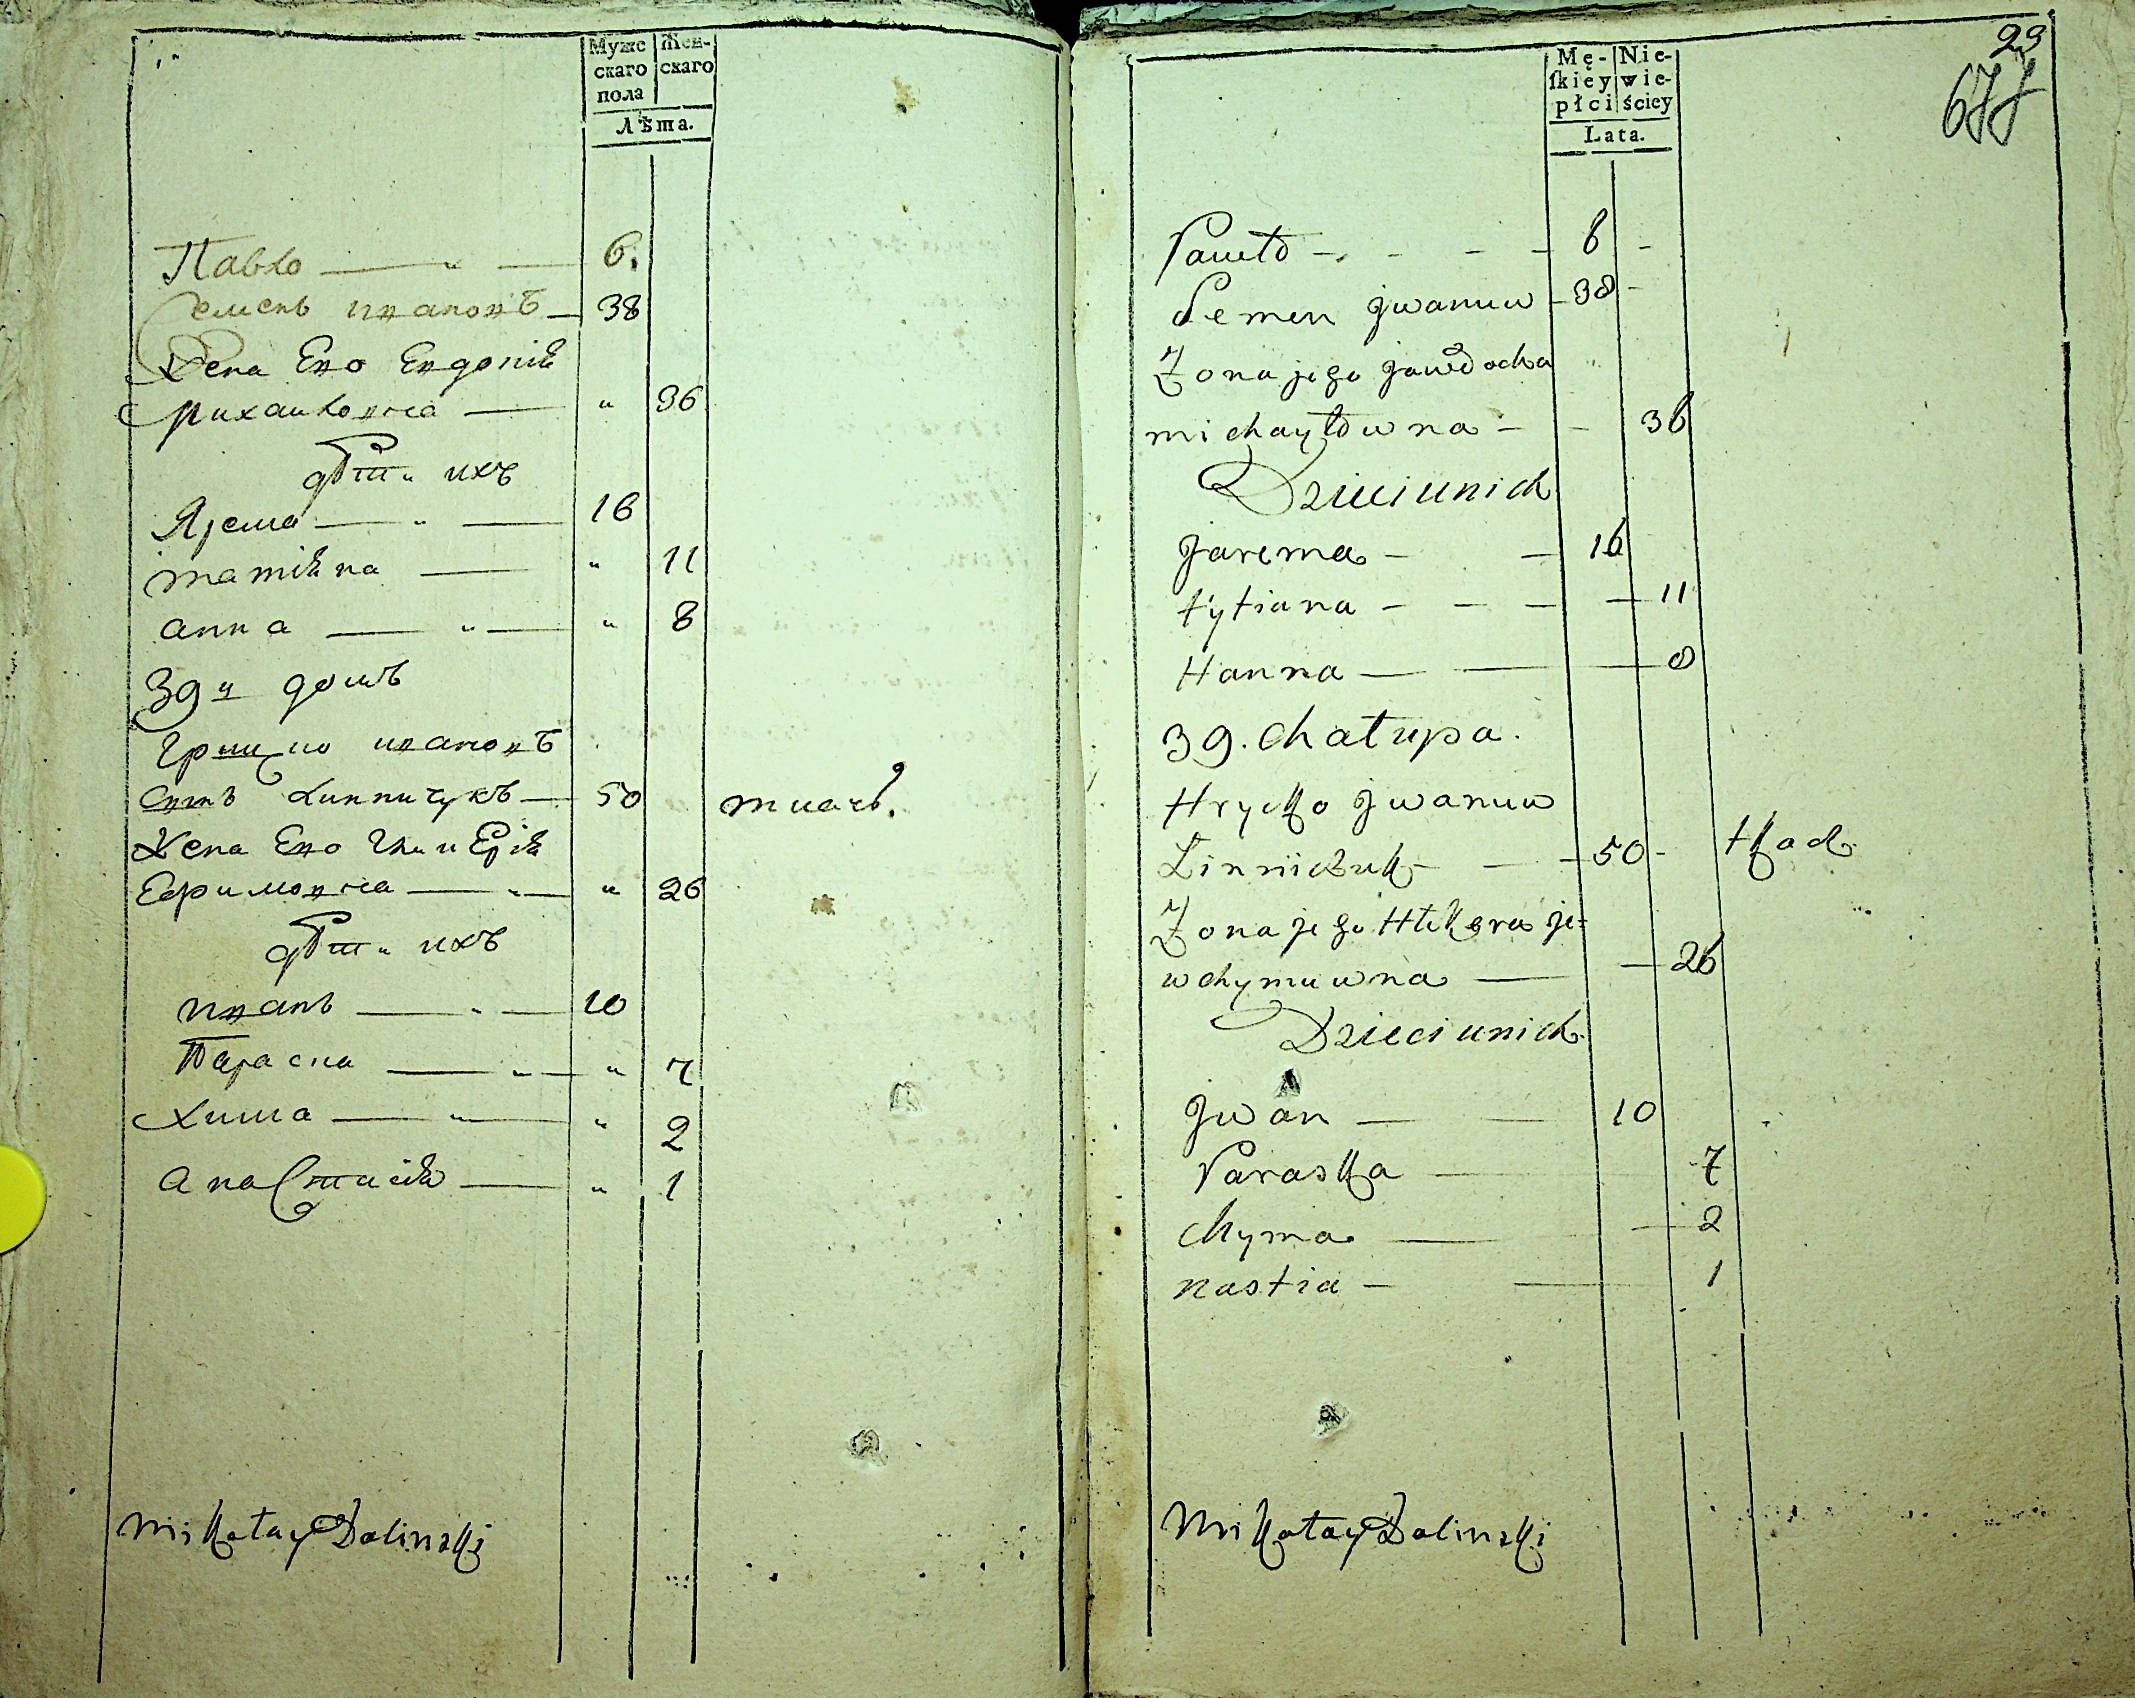 Мужс
скаго
пола
Жен-
скаго
Лѣта.
Павло 6.
Семенъ ивановъ 38
Жена Его Евдокія
Михайловна " 36
дѣти ихъ
Ярема 16
татіяна " 11
анна " 8
39й домъ
Грицко ивановъ
сынъ Линничукъ 50 ткачь.
Жена Его Гликерія
Ефимовна " 26
дѣти ихъ
иванъ 10
Параска " 7
Химa " 2
анастасія " 1
Mikołay Dolinski
29
677
Mę-
skiey
płci
Nie-
wie-
ściey
Lata.
Pawło 6
Semen Jwanuw 38
Żona jego Jawdocha
michayłowna 36
Dzieci unich
Jarema 16
tytiana 11
Hanna 8
39. Chałupa.
Hrycko Jwanuw
Linniczuk 50 tkacz
Żona jego Hlikera je=
wchymuwna 26
Dzieci unich.
Jwan 10
Paraska 7
Chyma 2
nastia 1
Mikołay Dolinski